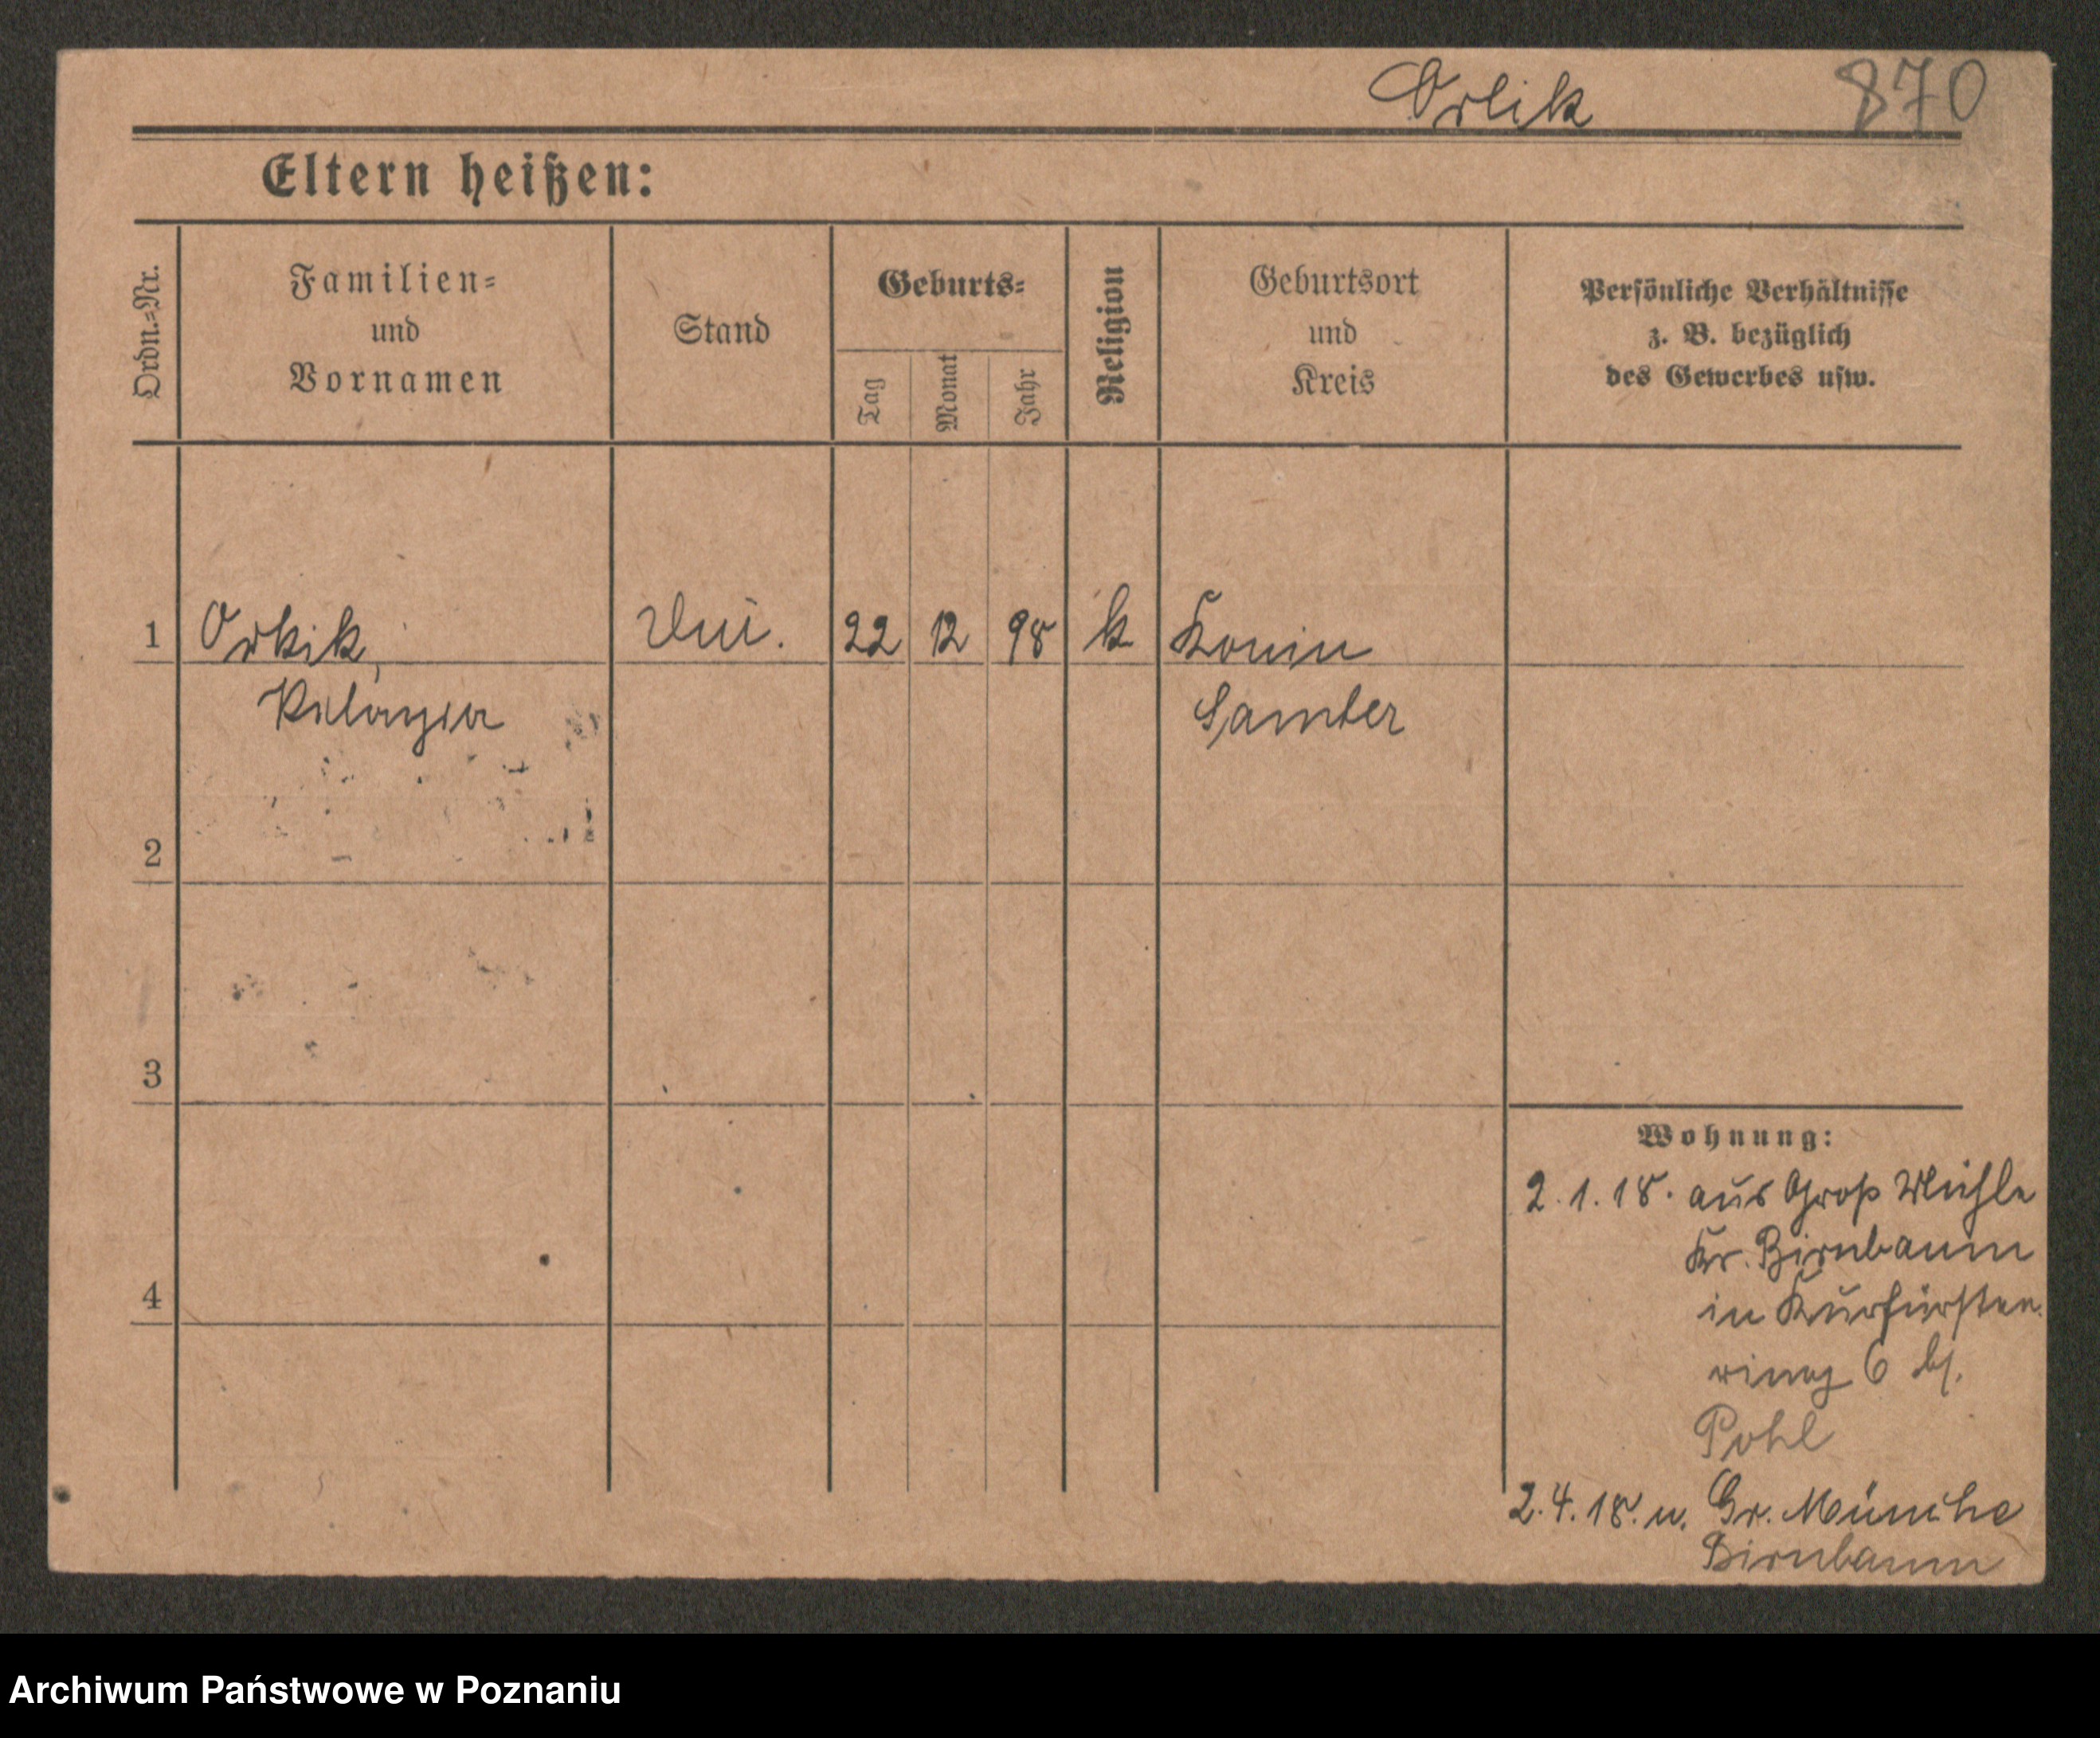 Orlik 870
Eltern heißen:
Ordn.=Nr.
Familien=
und
Vornamen
Stand
Geburts=
Tag
Monat
Jahr
Religion
Geburtsort
und
Kreis
Persönliche Verhältnisse
z. B. bezüglich
des Gewerbes usw.
1 Orlik, 22 12 98 k Konin
Pelagia Samter
2
3
4
Wohnung:
2.1.18. aus Groß Mühle
Kr. Birnbaum
in Kurfürsten
ring 6 bj.
Pohl
2.4.18. n. Gr. Münche
Birnbaum
Archiwum Państwowe w Poznaniu